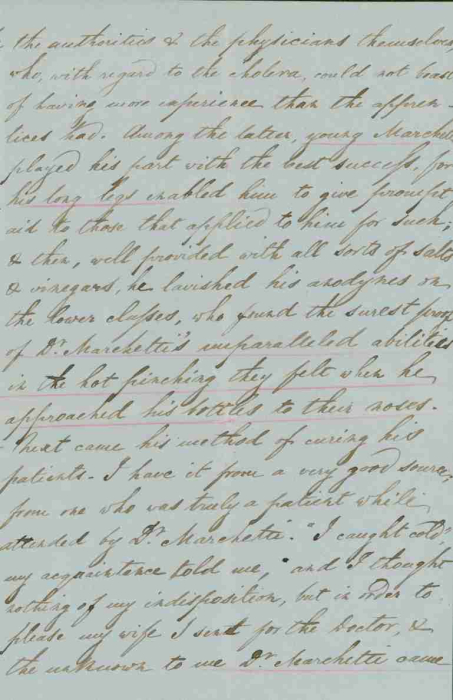 the authorities & the physicians themselves
who, with regard to the cholera, could not boast
of having more experience than the appren-
tices had. Among the latter, young Marchetti
played his part with the best success, for
his long legs enabled him to give prompt
aid to those that applied to him for such;
& then, well provided with all sorts of salts
& vinegars, he lavished his anodynes on
the lower classes, who found the surest proof
of Dr. Marchetti's unparalleled abilities
in the hot pinching they felt when he
approached his bottles to their noses.
- Next came his method of curing his
patients. I have it from a very good source,
from one who was truly a patient while
attended by Dr. Marchetti. "I caught cold"
my acquaintence told me, "and I thought
nothing of my indisposition, but in order to
please my wife I sent for the Doctor, &
the unknown to me Dr. Marchetti came